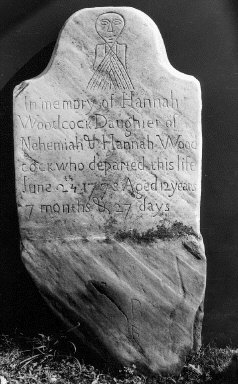 In memory of Hannah
Woodcock Daughter of
Nehemiah & Hannah Wood
cock who departed this life
June 24 Aged 12 years
7 months & 27 days